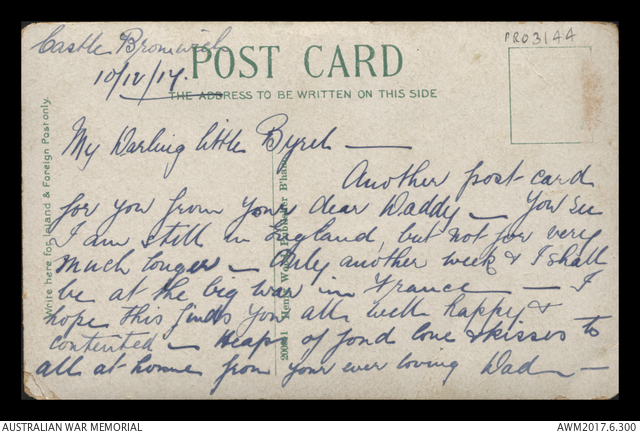 Castle Bromwich
10/12/17.
PRO3144
POST CARD
THE ADDRESS TO BE WRITTEN ON THIS SIDE
Write here for Inland & Foreign Post only.
My Darling little Byrel —
Another post-card
for you from your dear Daddy — You see
I am still in England, but not for very
much longer — Only another week & I shall
be at the big war in France — I
hope this finds you all well happy &
contented — Heaps of fond love & kisses to
all at home from your ever loving Dad —
Publisher B'ham
AUSTRALIAN WAR MEMORIAL
AWM2017.6.300